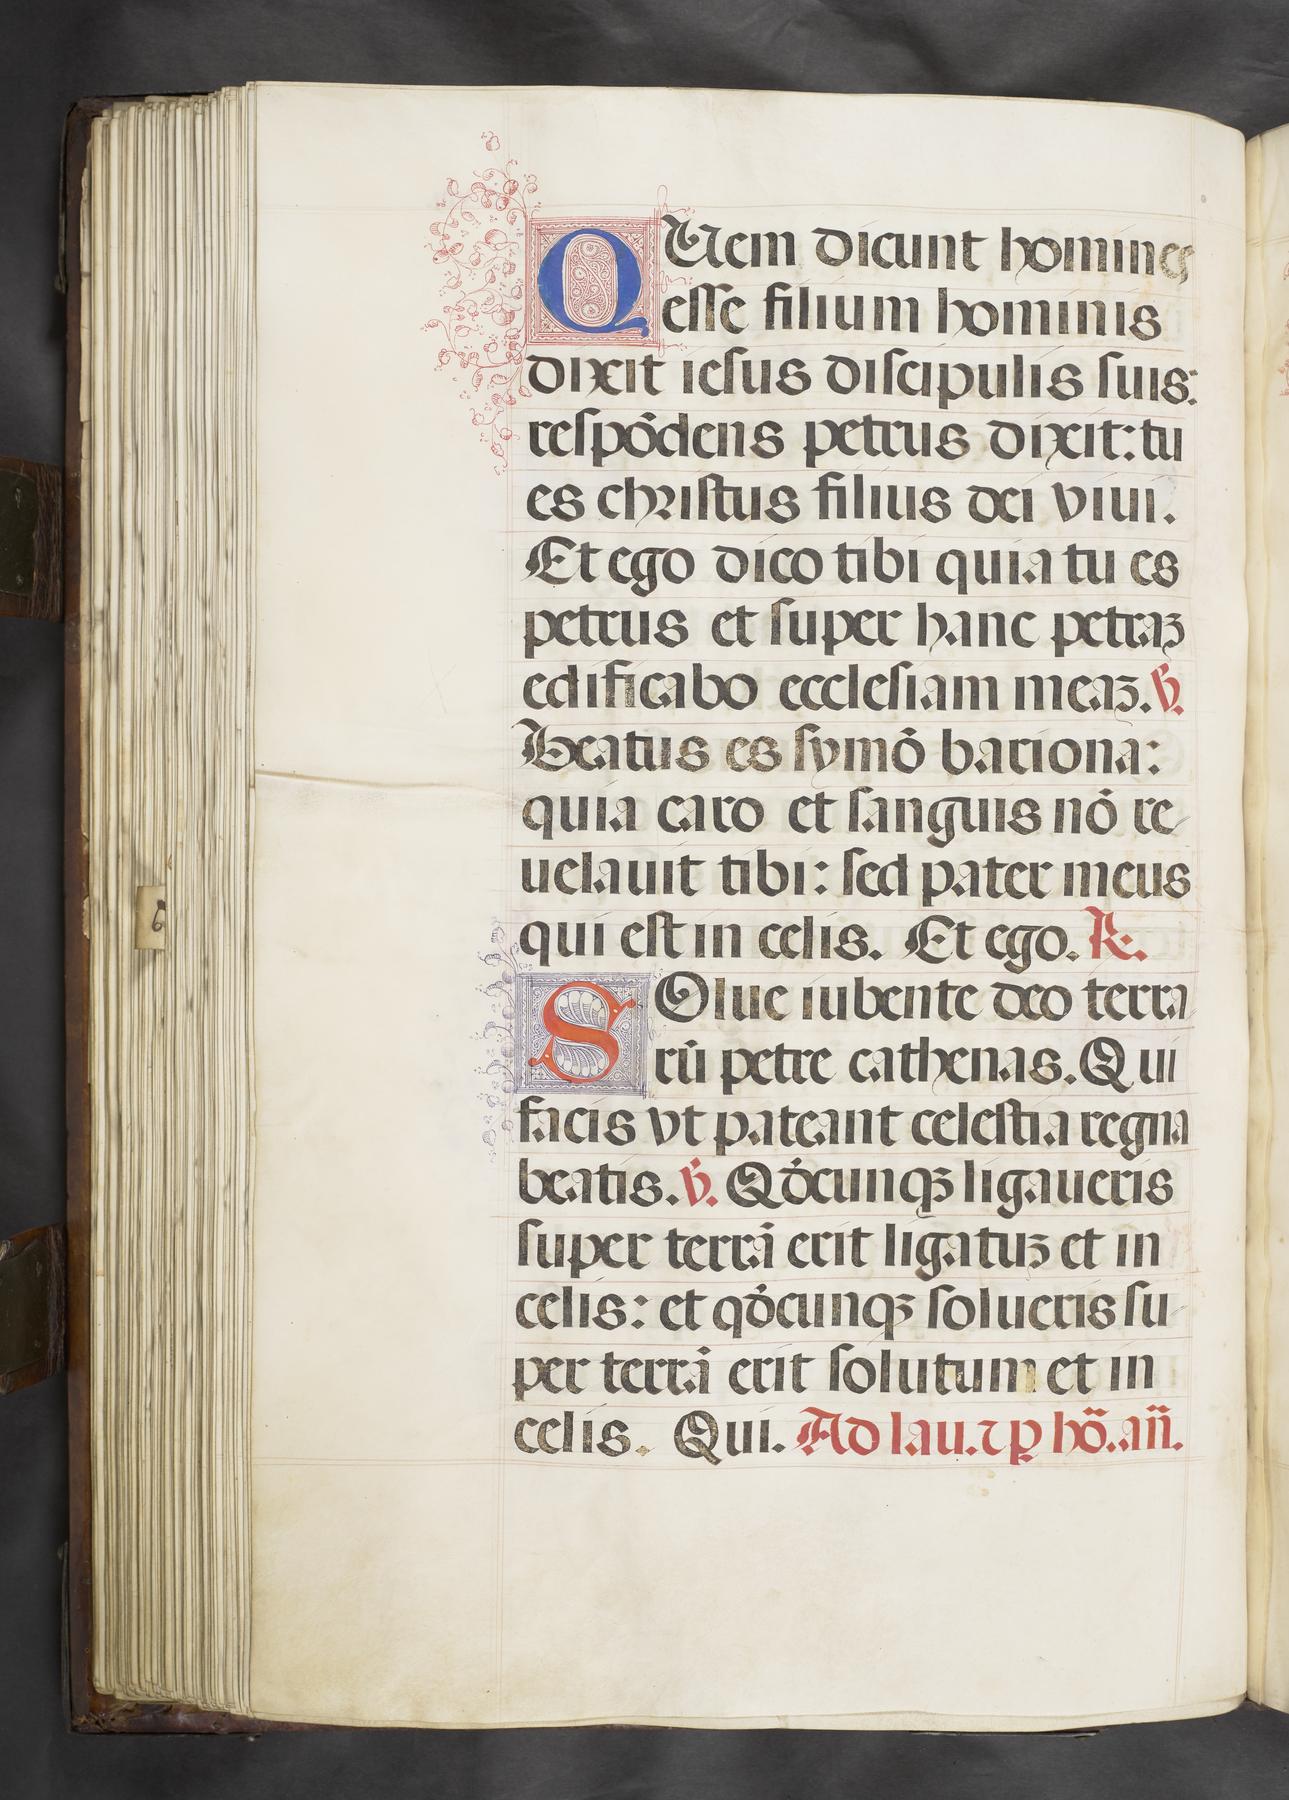 QUem dicunt homines
esse filium hominis
dixit iesus discipulis suis:
respōdens petrus dixit: tu
es christus filius dei viui.
Et ego dico tibi quia tu es
petrus et super hanc petraꝫ
edificabo ecclesiam meaꝫ. ℣.
Beatus es symō bariona:
quia caro et sanguis nō re-
uelauit tibi: sed pater meus
qui est in celis. Et ego. ℟.
SOlue iubente deo terra
rū petre cathenas. Qui
facis vt pateant celestia regna
beatis. ℣. Qōcunqꝫ ligaueris
super terrā erit ligatuꝫ et in
celis: et qōcunqꝫ solueris su-
per terrā erit solutum et in
celis. Qui. Ad lau. ⁊ ꝑ hō. añ.
6